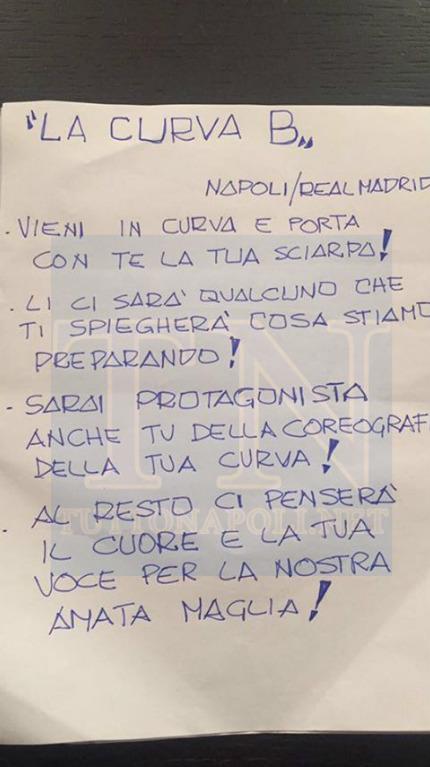 "LA CURVA B„
NAPOLI/REAL MADRID
. VIENI IN CURVA E PORTA
CON TE LA TUA SCIARPA!
. LI CI SARA' QUALCUNO CHE
TI SPIEGHERA' COSA STIAMO
PREPARANDO!
- SARAI PROTAGONISTA
ANCHE TU DELLA COREOGRAF
DELLA TUA CURVA!
. AL RESTO CI PENSERA'
TN
TUTTONAPOLI.NET
IL CUORE E LA TUA
VOCE PER LA NOSTRA
AMATA MAGLIA!